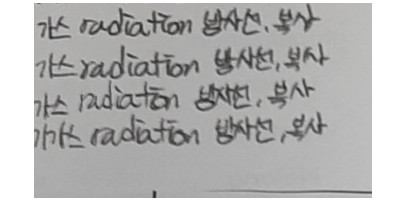 가스 radiation 방사선, 복사
가스 radiation 방사선, 복사
가스 radiation 방사선, 복사
가가스 radiation 방사선, 복사